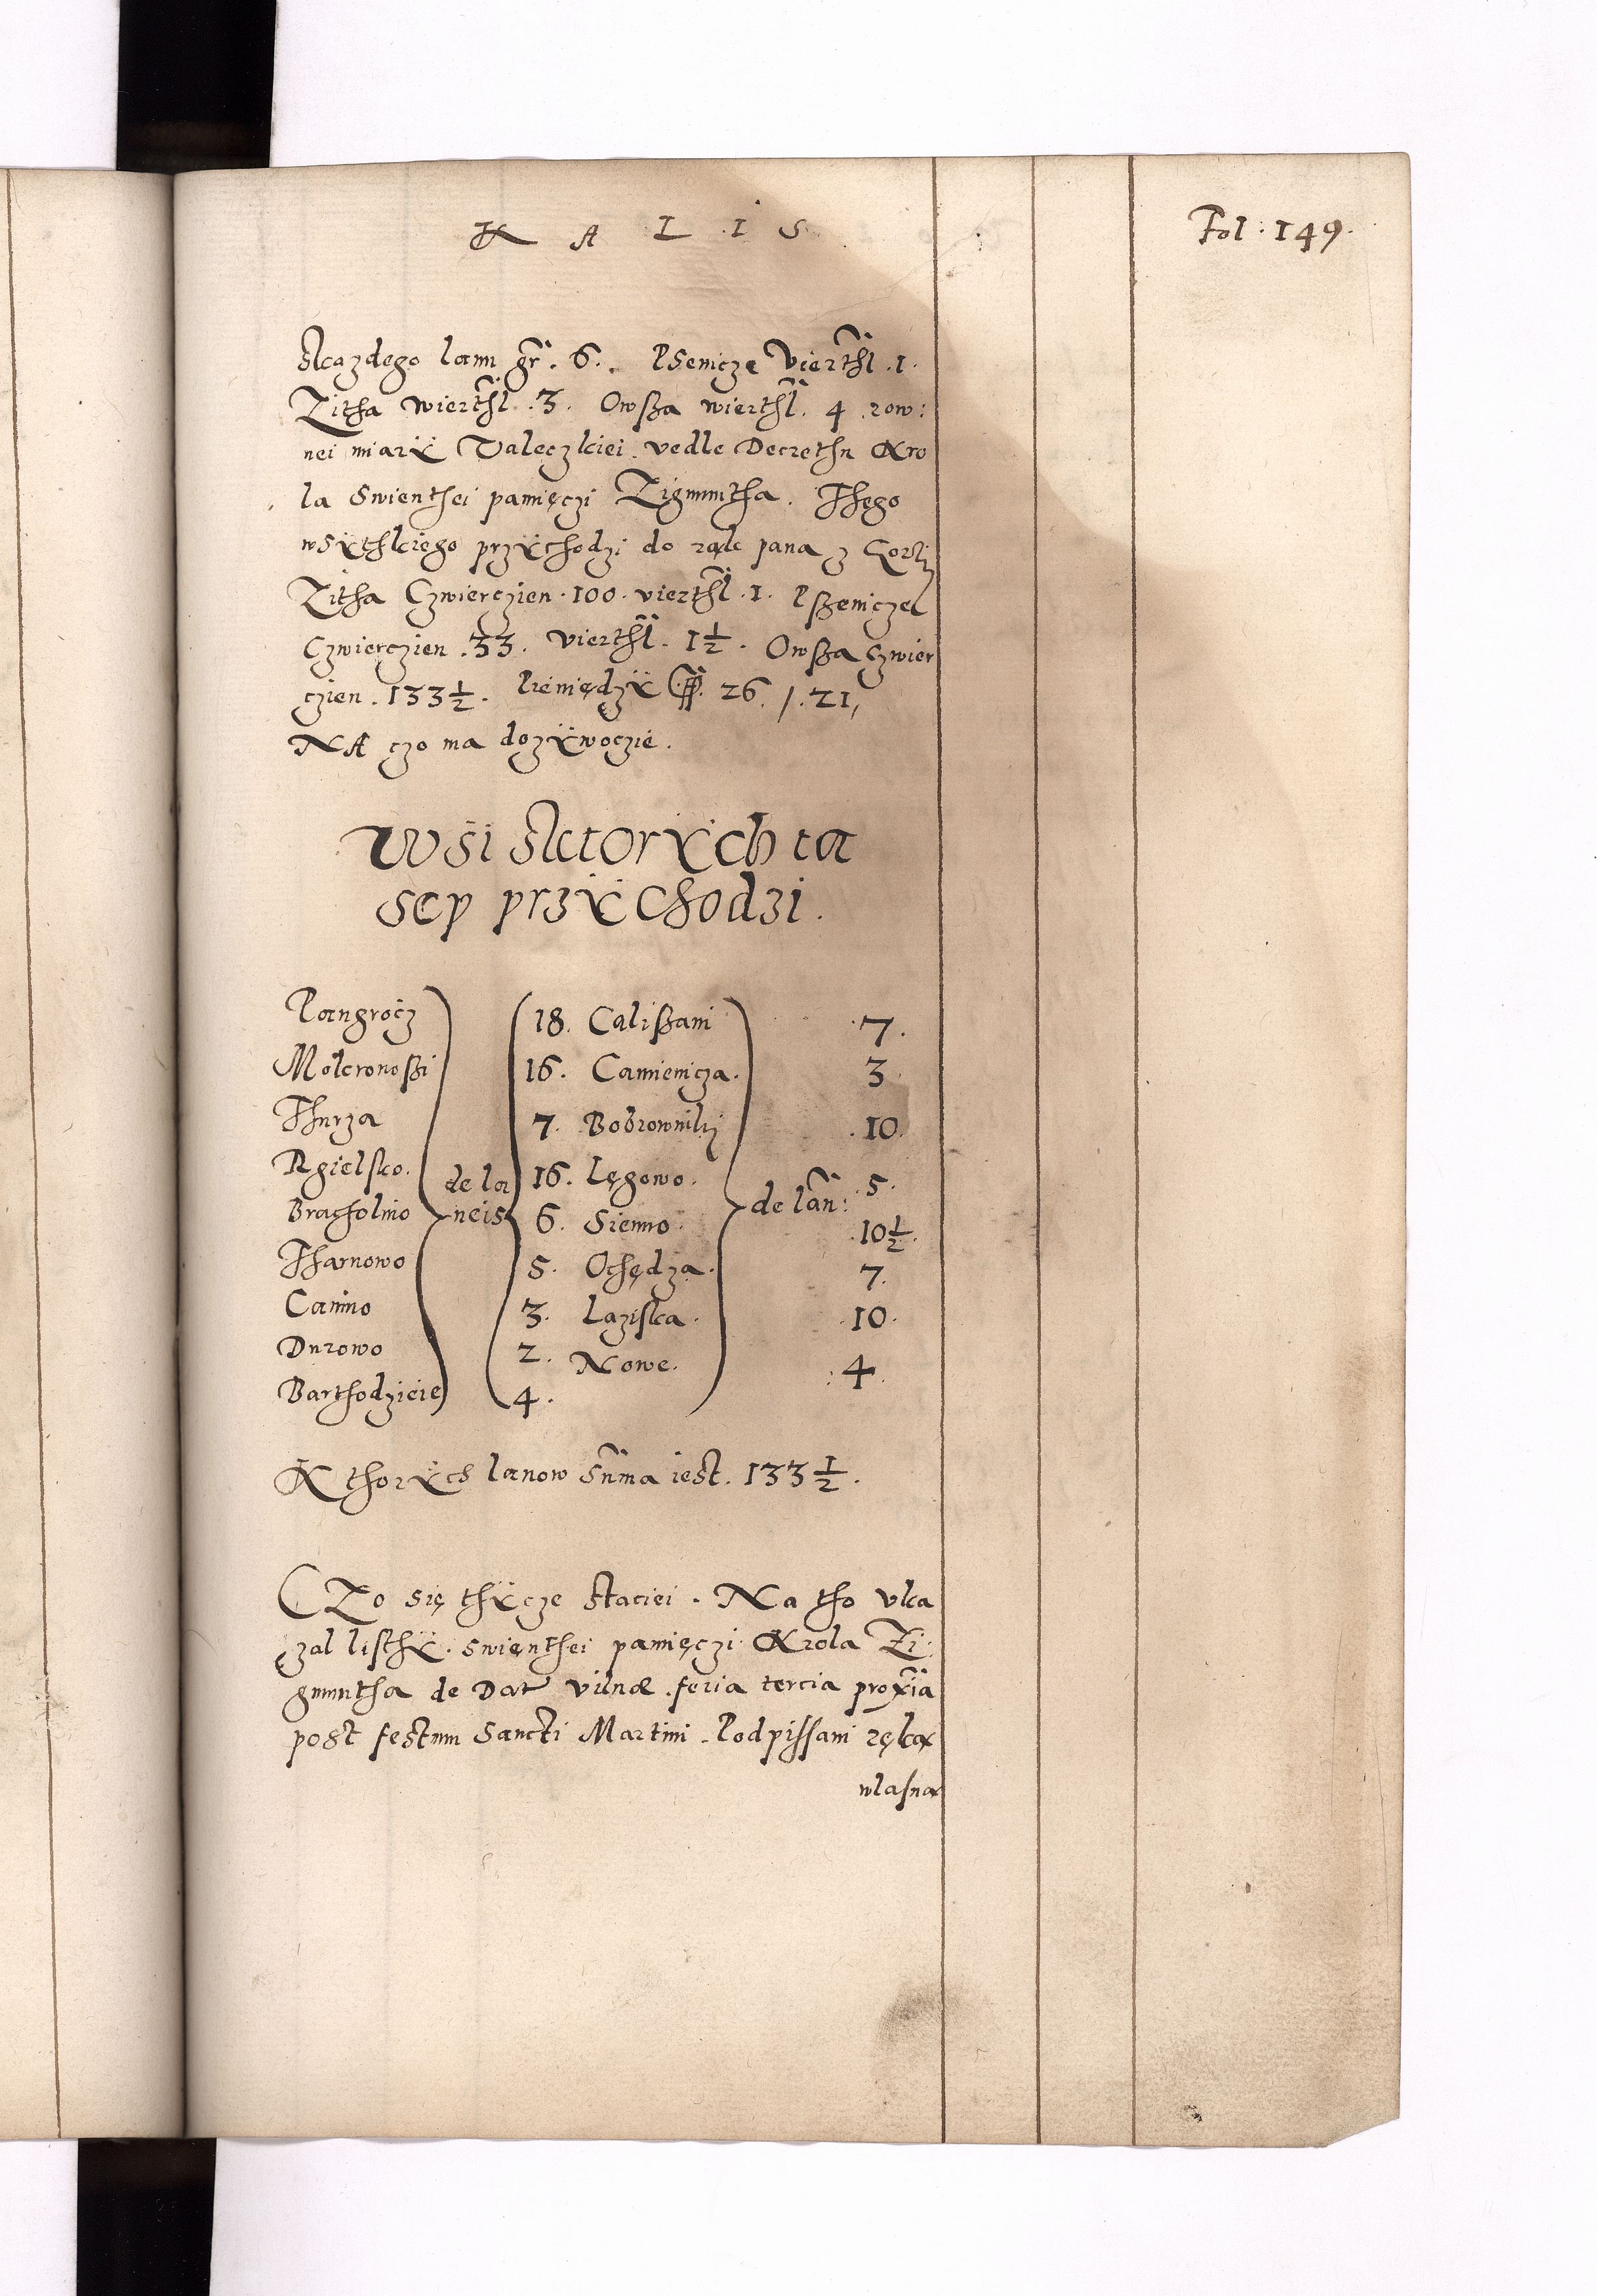 K A L I S
Fol: 149.
Skazdego lanu gr. 6. Psenicze Vierthl .1.
Zitha wierthl .3. Owsza wierthl. 4 row:
nei miarÿ Valeczkiei vedle Decrethu Kro
la Swienthei pamięczi Zigmuntha. Thego
wsÿthkiego przÿchodzi do rąk pana z Gorki
Zitha Czwierczien .100. vierthl .1. Pszeniczei
Czwierczien .33. vierthl. 1½. Owsza Czwier
czien .133½. Pieniędzÿ 26. /. 21,
NA czo ma dozÿwoczie.
Wsi SktorÿCh ta
sep przÿchodzi.
Pangrocz 18. Caliszani 7.
Mokronoszi 16. Camienicza. 3
Thurza 7. Bobrowniki .10.
Rgielsko. de la 16. Lęgowo. de lan: 5.
Bracholino neis 6. Sienno. 10½.
Tharnowo 5. Ochędza. 7.
Camino 3. Laziska. .10.
Durowo 2. Nowe. 4.
Barthodzieie 4.
Kthorÿch lanow Suma iest. 133½.
CZo się thÿcze staciei. Na tho vka
zal listhÿ. swięnthei pamięczi Krola Zi:
gmuntha de Dat vilnæ feria tercia proxia
post festum Sancti Martini. Podpissani ręką
wlasną